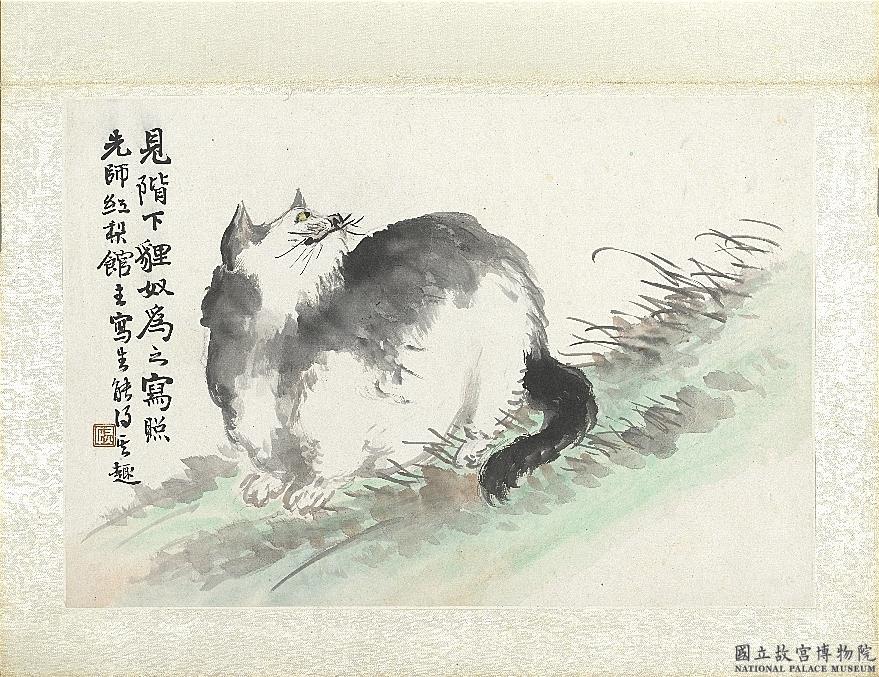 見階下貍奴為之寫照
先師紅梨館主寫生能得其趣
國立故宮博物院
NATIONAL PALACE MUSEUM